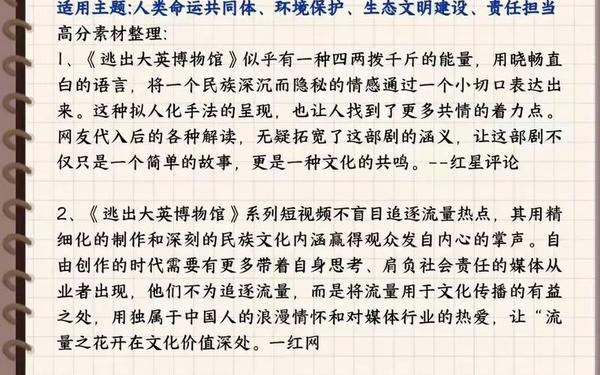 适用主题:人类命运共同体、环境保护、生态文明建设、责任担当
高分素材整理:
1、《逃出大英博物馆》似乎有一种四两拨千斤的能量，用晓畅直
白的语言，将一个民族深沉而隐秘的情感通过一个小切口表达出
来。这种拟人化手法的呈现，也让人找到了更多共情的着力点。
网友代入后的各种解读，无疑拓宽了这部剧的涵义，让这部剧不
仅只是一个简单的故事，更是一种文化的共鸣。--红星评论
2、《逃出大英博物馆》系列短视频不盲目追逐流量热点，其用精
细化的制作和深刻的民族文化内涵赢得观众发自内心的掌声。自
由创作的时代需要有更多带着自身思考、肩负社会责任的媒体从
业者出现，他们不为追逐流量，而是将流量用于文化传播的有益
之处，用独属于中国人的浪漫情怀和对媒体行业的热爱，让“流
量之花开在文化价值深处。一红网